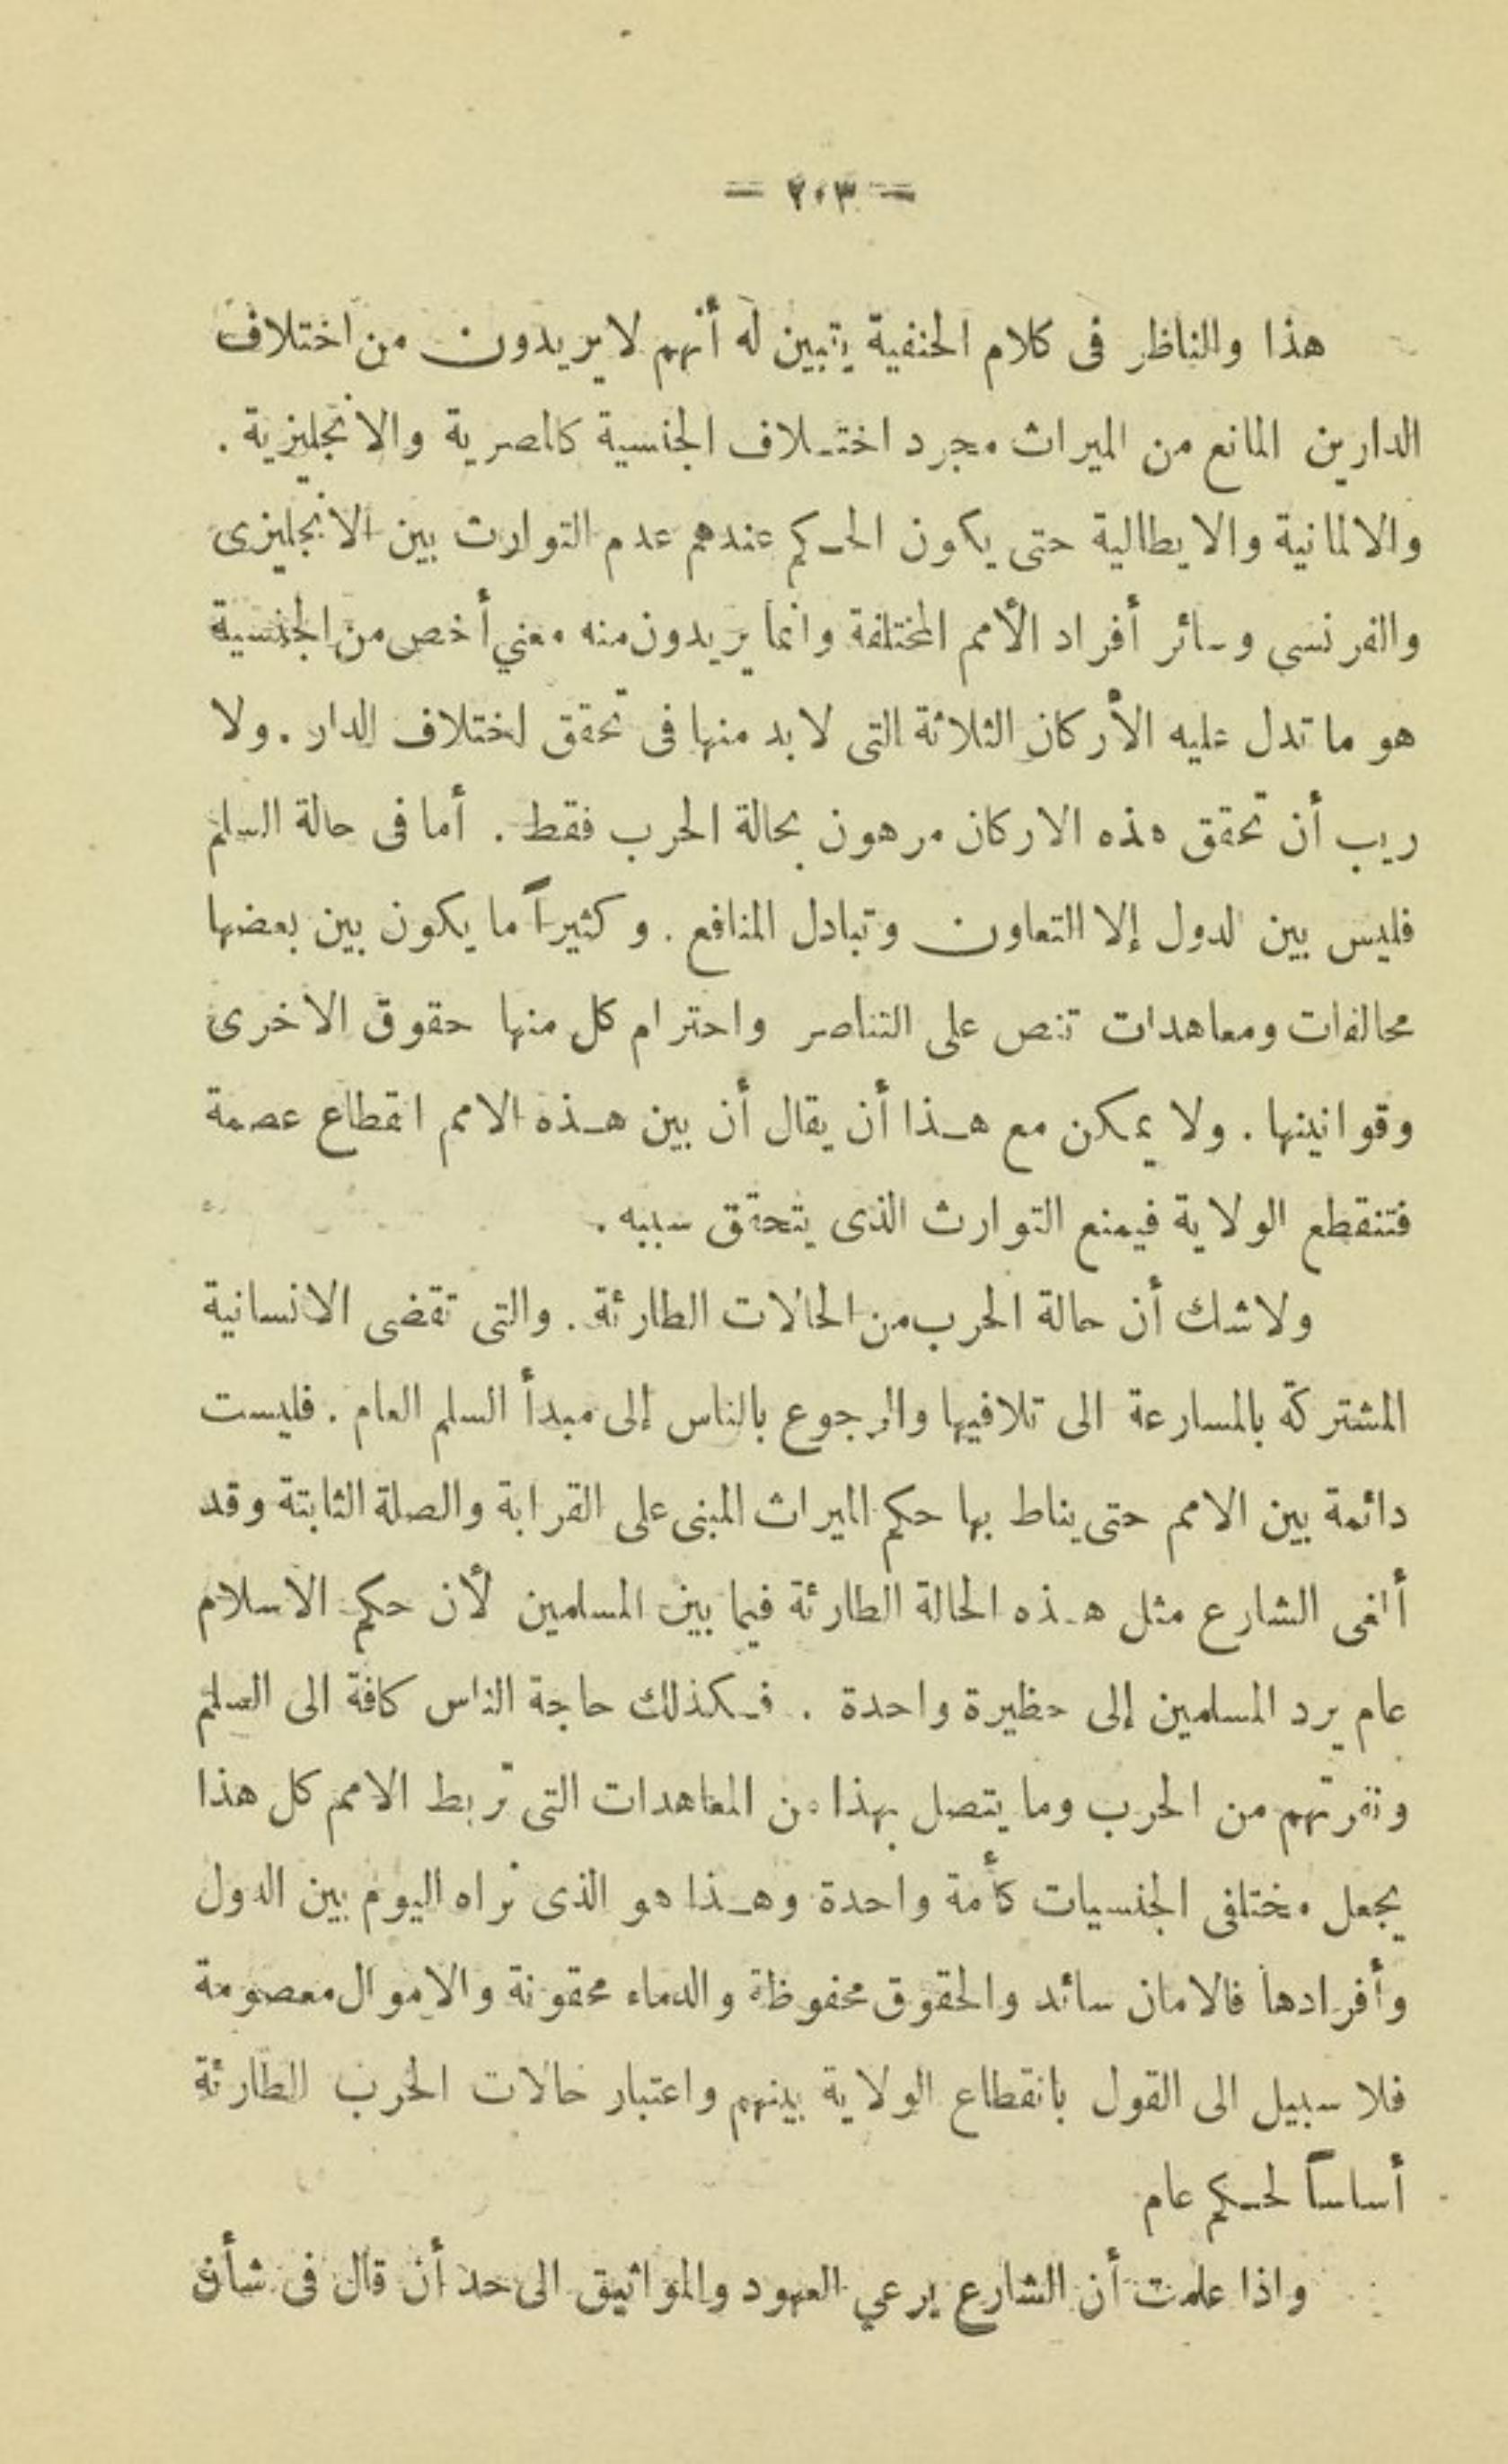 = ٢٠٣ =
هذا والناظر فى كلام الحنفية يتبين له أنهم لا يريدون من اختلاف
الدارين المانع من الميراث مجرد اختلاف الجنسية كالمصرية والانجليزية .
والالمانية والايطالية حتى يكون الحكم عندهم عدم التوارث بين الانجليزى
والفرنسي وسائر أفراد الأمم المختلفة وانما يريدون منه معني أخص من الجنسية
هو ما تدل عليه الأركان الثلاثة التى لابد منها فى تحقق اختلاف الدار . ولا
ريب أن تحقق هذه الاركان مرهون بحالة الحرب فقط . أما فى حالة السلم
فليس بين الدول إلا التعاون وتبادل المنافع . وكثيراً ما يكون بين بعضها
محالفات ومعاهدات تنص على التناصر واحترام كل منها حقوق الاخرى
وقوانينها . ولا يمكن مع هذا أن يقال أن بين هذه الامم انقطاع عصمة
فتنقطع الولاية فيمنع التوارث الذى يتحقق سببه .
ولاشك أن حالة الحرب من الحالات الطارئة . والتى تقضى الانسانية
المشتركة بالمسارعة الى تلافيها والرجوع بالناس إلى مبدأ السلم العام . فليست
دائمة بين الامم حتى يناط بها حكم الميراث المبنى على القرابة والصلة الثابتة وقد
ألغى الشارع مثل هذه الحالة الطارئة فيما بين المسلمين لأن حكم الاسلام
عام يرد المسلمين إلى حظيرة واحدة . فكذلك حاجة الناس كافة الى السلم
ونفرتهم من الحرب وما يتصل بهذا من المعاهدات التى تربط الامم كل هذا
يجعل مختلفى الجنسيات كأمة واحدة وهذا هو الذى نراه اليوم بين الدول
وأفرادها فالامان سائد والحقوق محفوظة والدماء محقونة والاموال معصومة
فلا سبيل الى القول بانقطاع الولاية بينهم واعتبار حالات الحرب الطارئة
أساساً لحكم عام
واذا علمت أن الشارع يرعي العهود والمواثيق الى حد أن قال فى شأن